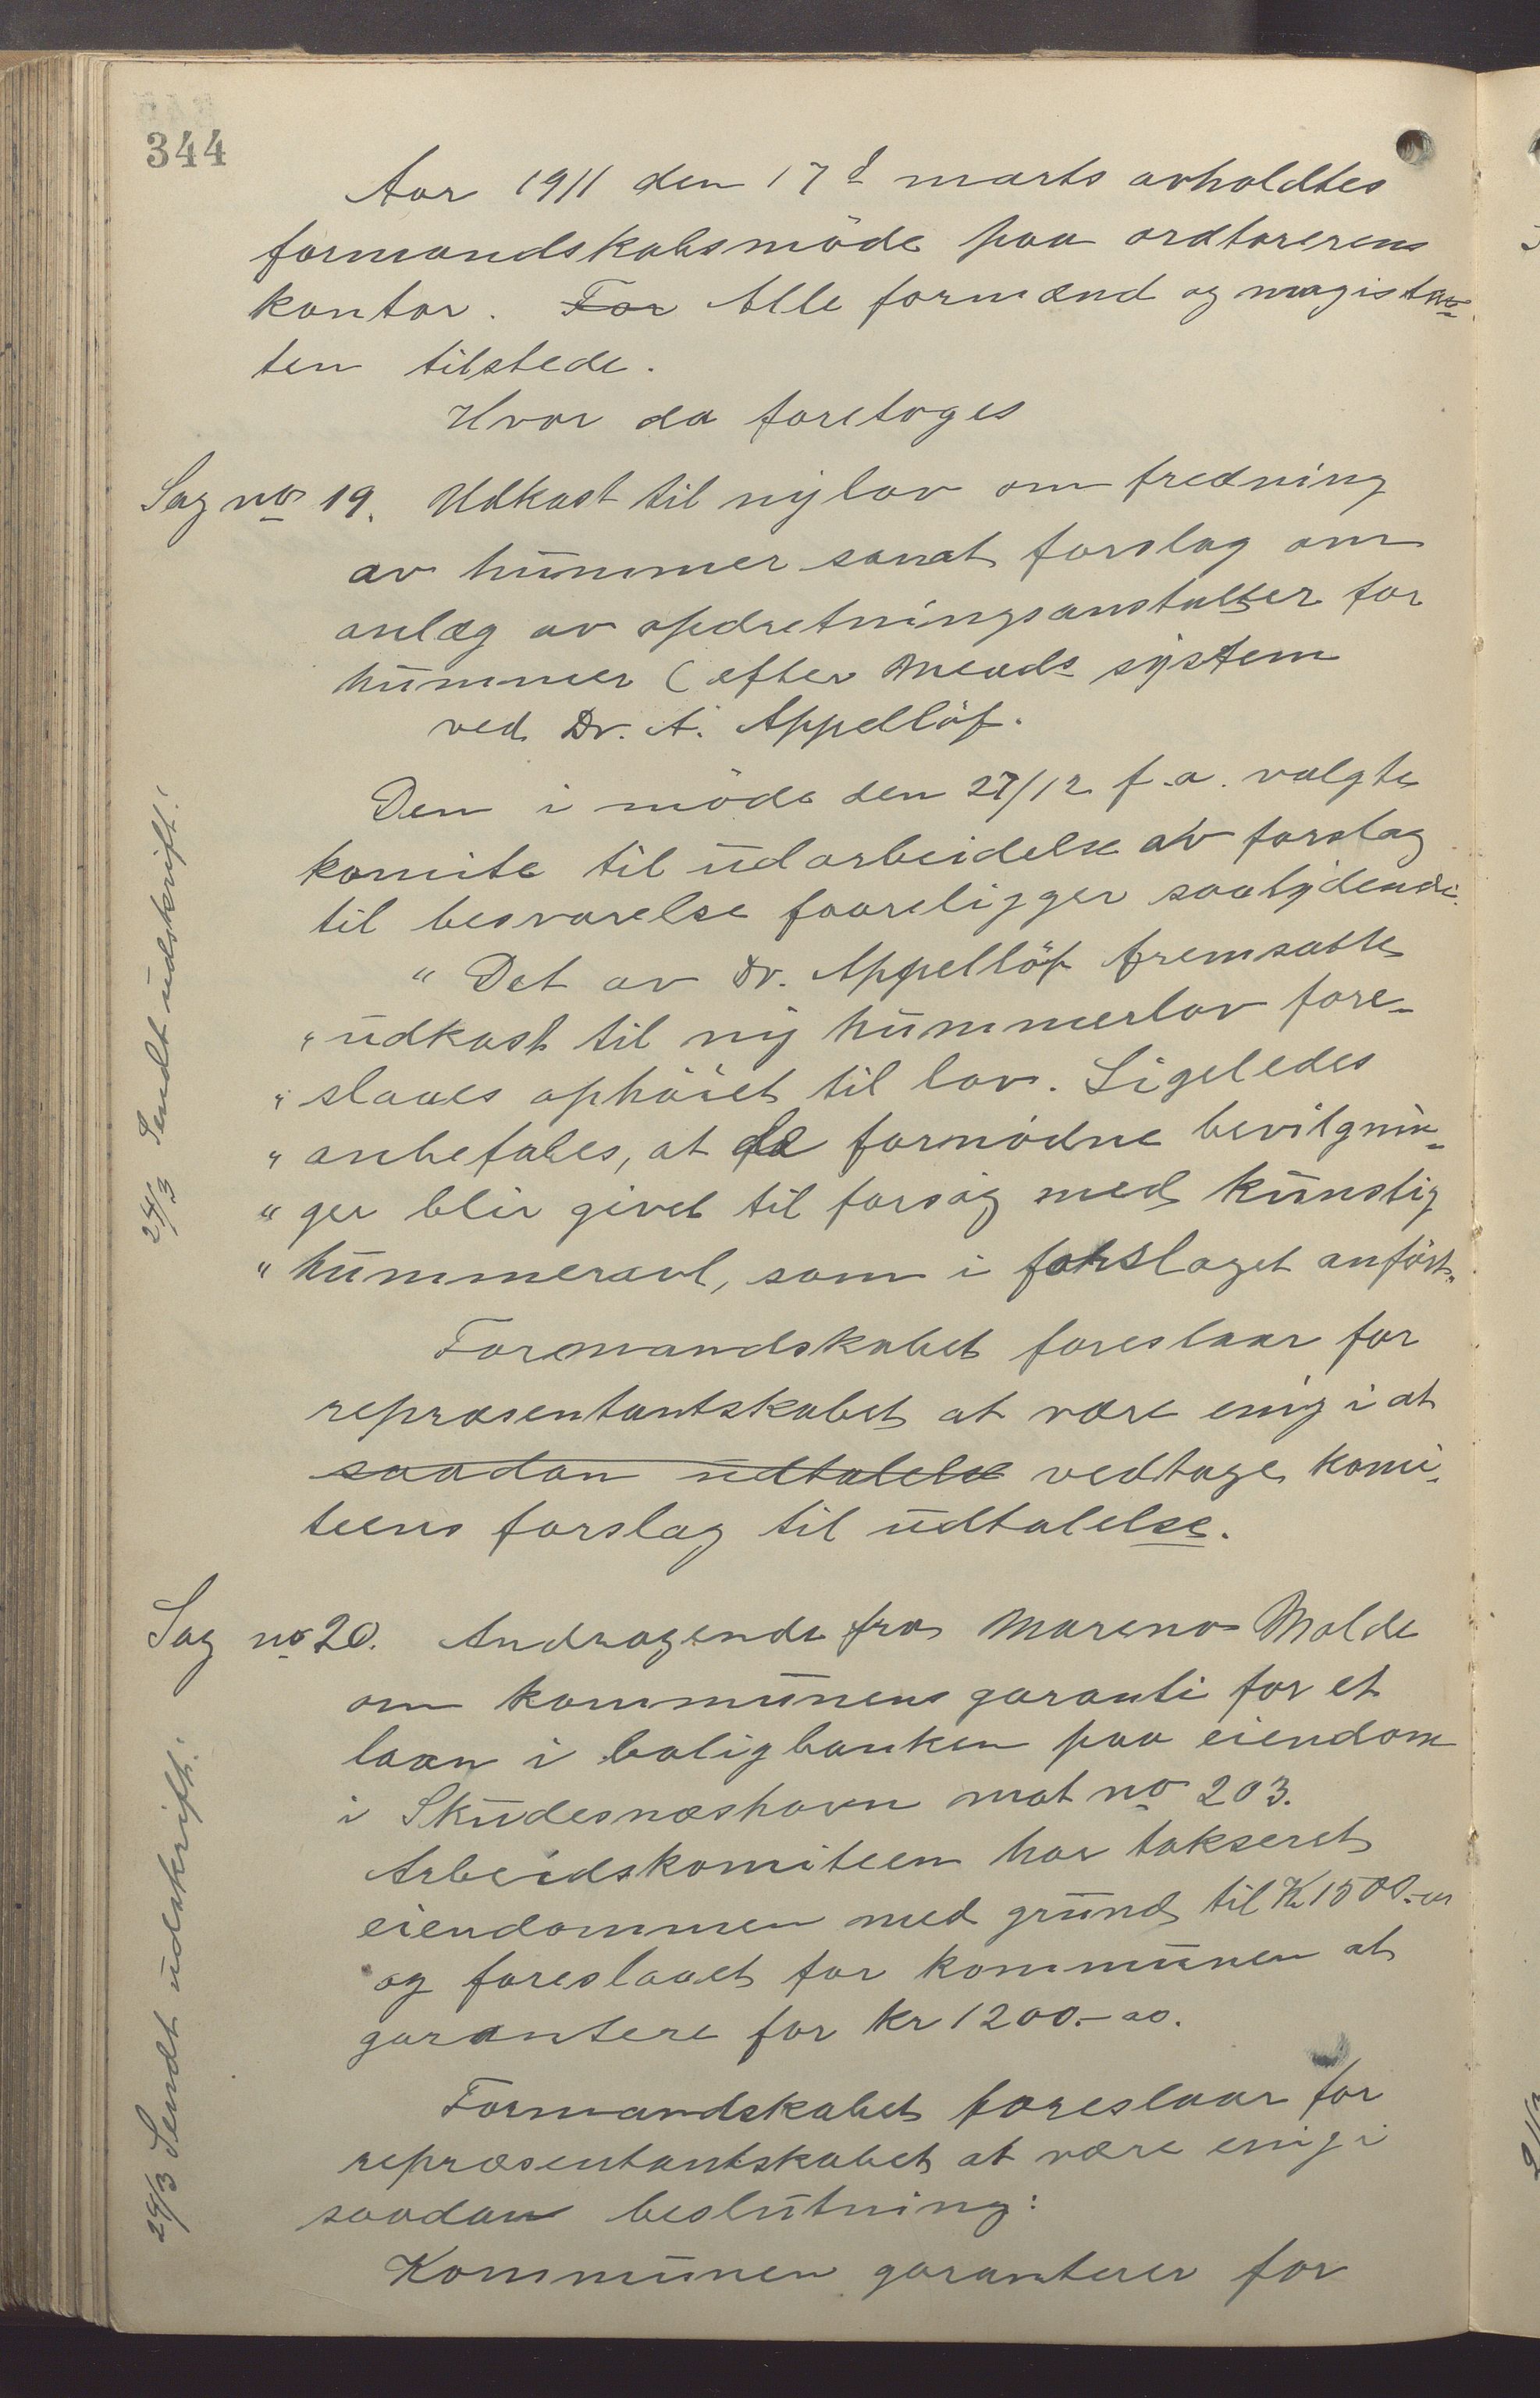 344
Aar 1911 den 17d marts avholdtes
formandskabsmöde paa ordförerens
kontor. For Alle formænd og magistra-
ten tilstede.
Hvor da foretoges
Sag no 19. Udkast til ny lov om fredning
av hummer samt forslag om
anlæg av opdretningsanstalter for
hummer (efter Meads system
ved Dr. A. Appellöf.
Den i möde den 27/12 f.a. valgte
komite til udarbeidelse av forslag
til besvarelse foreligger saalydende:
" Det av Dr. Appellöf fremsatte
" udkast til ny hummerlov fore-
" slaaes ophöiet til lov. Ligeledes
" anbefales, at de fornödne bevilgnin-
" ger blir givet til forsög med kunstig
" hummeravl, som i forslaget anfört."
Formandskabet foreslaar for
repræsentantskabet at være enig i at
saadan udtalelse vedtage komi-
teens forslag til udtalelse.
24/3 Sendt udskrift.
Sag no 20. Andragende fra Mareno Molde
om kommunens garanti for et
laan i boligbanken paa eiendom
i Skudesnæshavn mat no 203.
Arbeidskomiteen har takseret
eiendommen med grund til Kr 1500.-oo
og foreslaaet for kommunen at
garantere for kr 1200.-oo.
Formandskabet foreslaar for
repræsentantskabet at være enig i
saadan beslutning:
Kommunen garanterer for
24/3 Sendt udskrift.